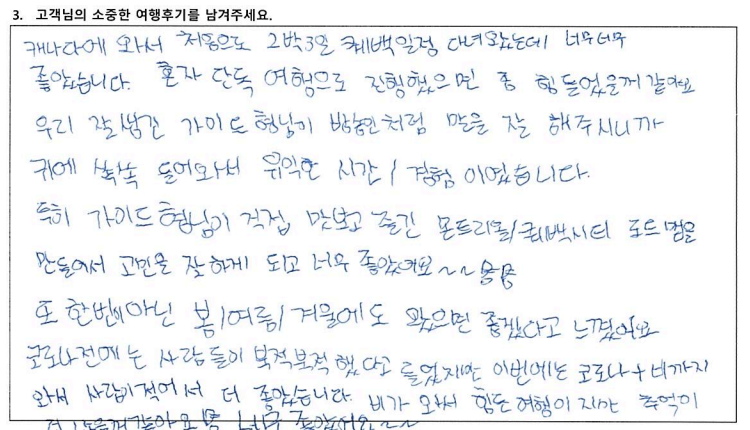 3. 고객님의 소중한 여행후기를 남겨주세요.
캐나다에 와서 처음으로 2박3일 퀘백일정 다녀왔는데 너무너무
좋았습니다. 혼자 단독 여행으로 진행했으면 좀 힘들었을께 같아요
우리 잘생긴 가이드 형님이 방송인처럼 말을 잘 해주시니까
귀에 쏙쏙 들어와서 유익한 시간/경험 이였습니다.
특히 가이드형님이 직접 맛보고 즐긴 몬트리올/퀘백시티 푸드맵을
만들어서 고민을 잘하게 되고 너무 좋았어요~~
또 한번이아닌 봄/여름/겨울에도 왔으면 좋겠다고 느꼈어요
코로나전에는 사람들이 북적북적했다고 들었지만 이번에는 코로나+비까지
와서 사람이적어서 더 좋았습니다. 비가 와서 힘든여행이지만 추억이
너무 좋았어요~~